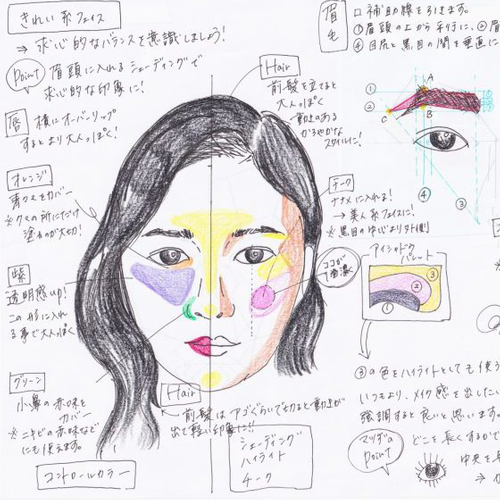 きれい系フェイス
→ 求心的なバランスを意識しましょう!
Point
眉頭に入れるシェーディングで
求心的な印象に!
唇
横にオーバーリップ
するとより大人っぽく!
オレンジ
青クマをカバー
※クマの所にだけ
塗るのが大切!
紫
透明感up!
この形に入れ
る事で大人っぽく
グリーン
小鼻の赤味を
カバー
※ニキビの赤味など
にも使えます。
コントロールカラー
Hair
前髪を立ると
大人っぽく
動きのある
かろやかな
スタイルに!
チーク
ナナメに入れる!
→ 美人系フェイスに!
※黒目の中心より外側
ココが
1番濃く
Hair
前髪はアゴぐらいで切ると動きが
出て軽い印象に!!
シェーディング
ハイライト
チーク
眉毛
□ 補助線を引きます。
①眉頭の上から平行に、②眉
④目尻と黒目の間を垂直に
①
②
A
B
C
④
③
アイシャドウ
パレット
①
②
③
③の色をハイライトとしても使う
いつもより、メイク感を出したい
強調すると良いと思います。
マツゲの
Point
どこを長くするかで
中央を